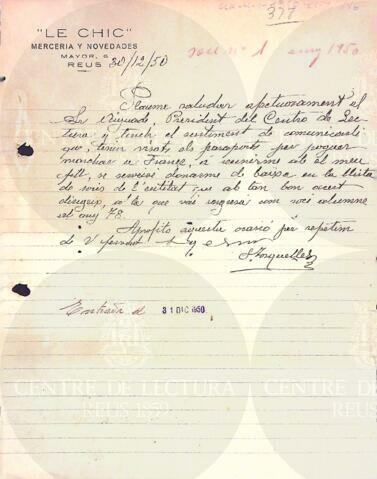 378
"LE CHIC"
MERCERIA Y NOVEDADES
MAYOR, 6
REUS 30/12/50
1 any 1950
Plaume saludar afectuosament el
Sr Aiguadé, President del Centro de Lec
tura y tinch el sentiment de comunicarli
que, tenin visat, els pasaports per poguer
marchar a França, á reunirme ab el meu
fill, se serveisi donarme de baixa en la llista
de socis de l'entitat que ab tan bon acert
dirigeix, á la que vás ingresa com noi alumne
el any 78.
Aprofito aquesta ocasió per repetim
de V
S. Torquelles
Entrada el 31 DIC 1950
CENTRE DE LECTURA
REUS 1859
CENTRE DE LECTURA
REUS 1859